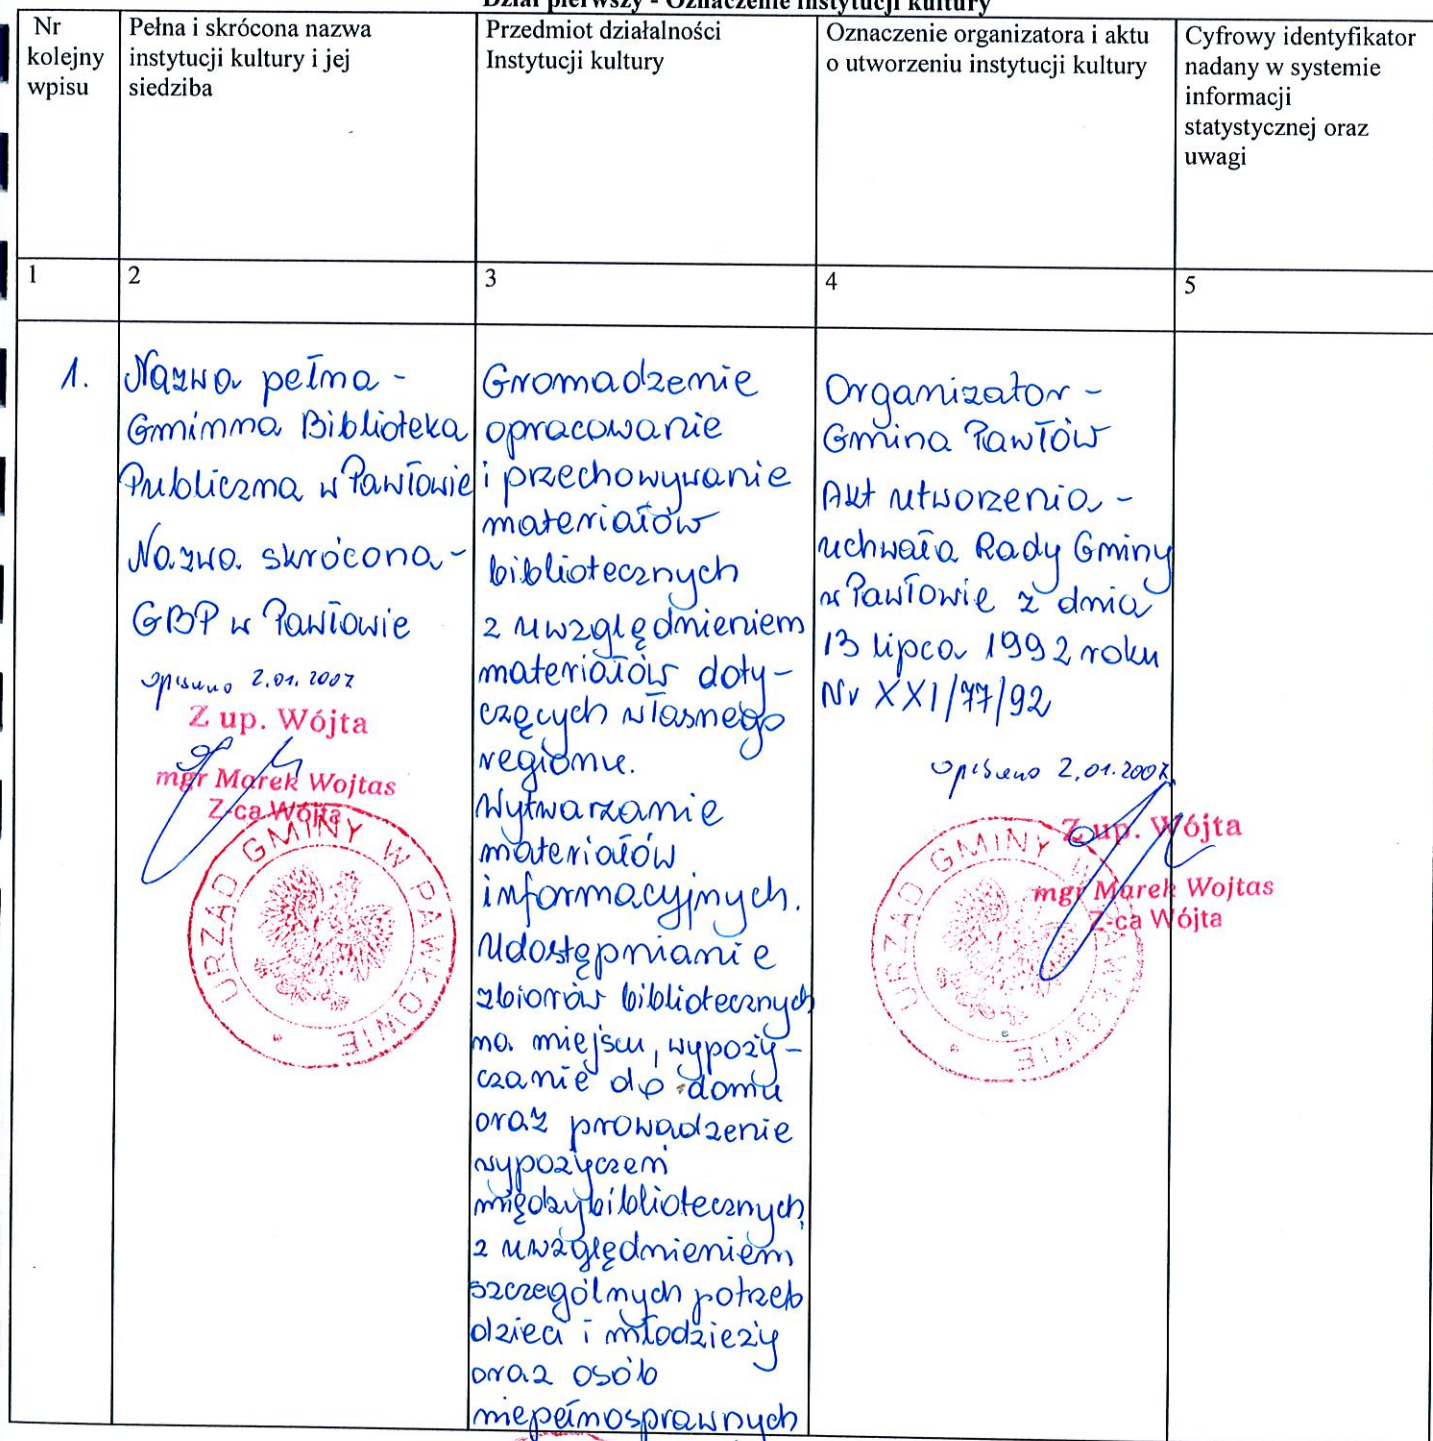 Dział pierwszy - Oznaczenie instytucji kultury
Nr
kolejny
wpisu
Pełna i skrócona nazwa
instytucji kultury i jej
siedziba
Przedmiot działalności
Instytucji kultury
Oznaczenie organizatora i aktu
o utworzeniu instytucji kultury
Cyfrowy identyfikator
nadany w systemie
informacji
statystycznej oraz
uwagi
1
2
3
4
5
1.
Nazwa pełna -
Gminna Biblioteka
Publiczna w Pawłowie
Nazwa skrócona -
GBP w Pawłowie
opisano 2.01.2007
Z up. Wójta
mgr Marek Wojtas
Z-ca Wójta
URZĄD GMINY W PAWŁOWIE
Gromadzenie
opracowanie
i przechowywanie
materiałów
bibliotecznych
z uwzględnieniem
materiałów doty-
czących własnego
regionu.
Wytwarzanie
materiałów
informacyjnych.
Udostępnianie
zbiorów bibliotecznych
na miejscu, wypoży-
czanie do domu
oraz prowadzenie
wypożyczeń
międzybibliotecznych,
z uwzględnieniem
szczególnych potrzeb
dzieci i młodzieży
oraz osób
niepełnosprawnych
Organizator -
Gmina Pawłów
Akt utworzenia -
uchwała Rady Gminy
w Pawłowie z dnia
13 lipca 1992 roku
Nr XXI/77/92
opisano 2.01.2007
Z up. Wójta
mgr Marek Wojtas
Z-ca Wójta
URZĄD GMINY W PAWŁOWIE